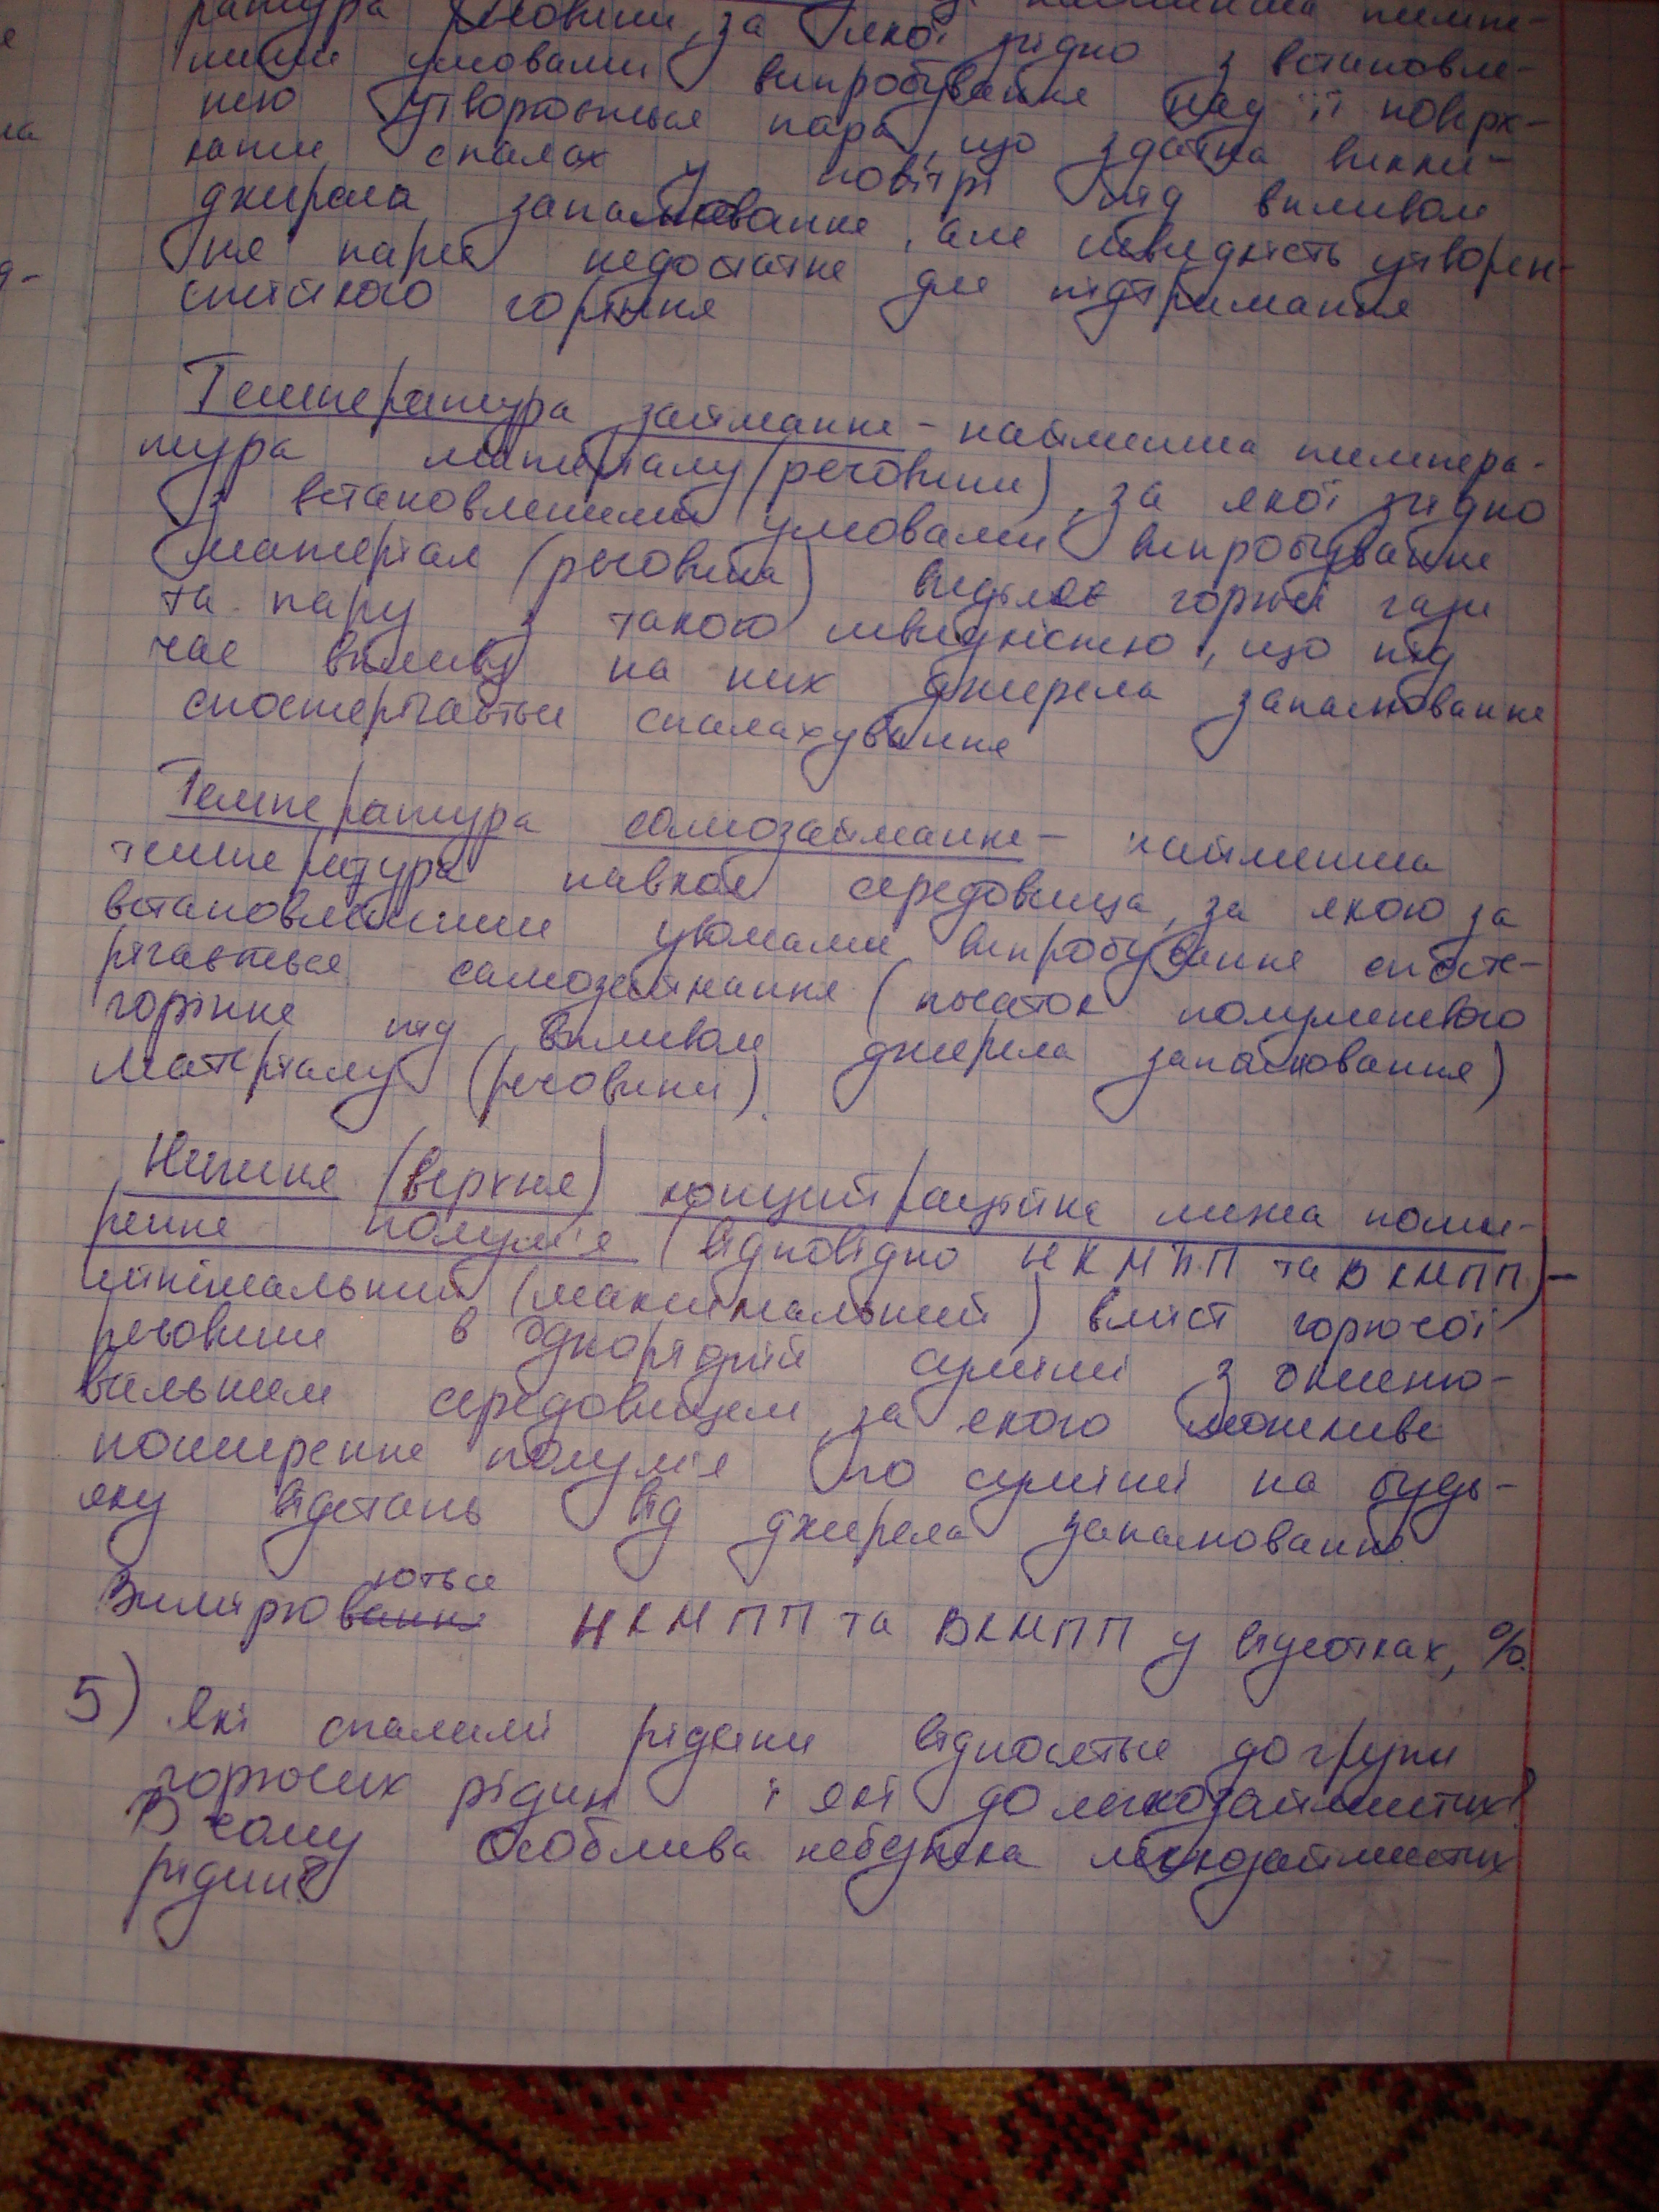 ратура речовини, за якої згідно з встановле-
ними умовами випробування над її поверх-
нею утворюється пара, що здатна викли-
кати спалах у повітрі під впливом
джерела запалювання, але швидкість утворен-
ня пари недостатня для підтримання
стійкого горіння
Температура займання - найменша темпера-
тура матеріалу (речовини), за якої згідно
з встановленими умовами випробування
матеріал (речовина) виділяє горючі гази
та пару з такою швидкістю, що під
час впливу на них джерела запалювання
спостерігається спалахування
Температура самозаймання - найменша
температура навкол середовища, за якою за
встановленими умовами випробування спосте-
рігається самозаймання (початок полуменевого
горіння під впливом джерела запалювання)
матеріалу (речовини).
Нижня (верхня) концентраційна межа поши-
рення полум'я (відповідно НКМПП та ВКМПП) -
мінімальний (максимальний) вміст горючої
речовини в однорідній суміші з окисню-
вальним середовищем, за якого можливе
поширення полум'я по суміші на будь-
яку відстань від джерела запалювання.
Вимірюються НКМПП та ВКМПП у відсотках, %.
5) Які спалимі рідини відносяться до групи
горючих рідин і які до легкозаймистих?
В чому особлива небезпека легкозаймистих
рідин?